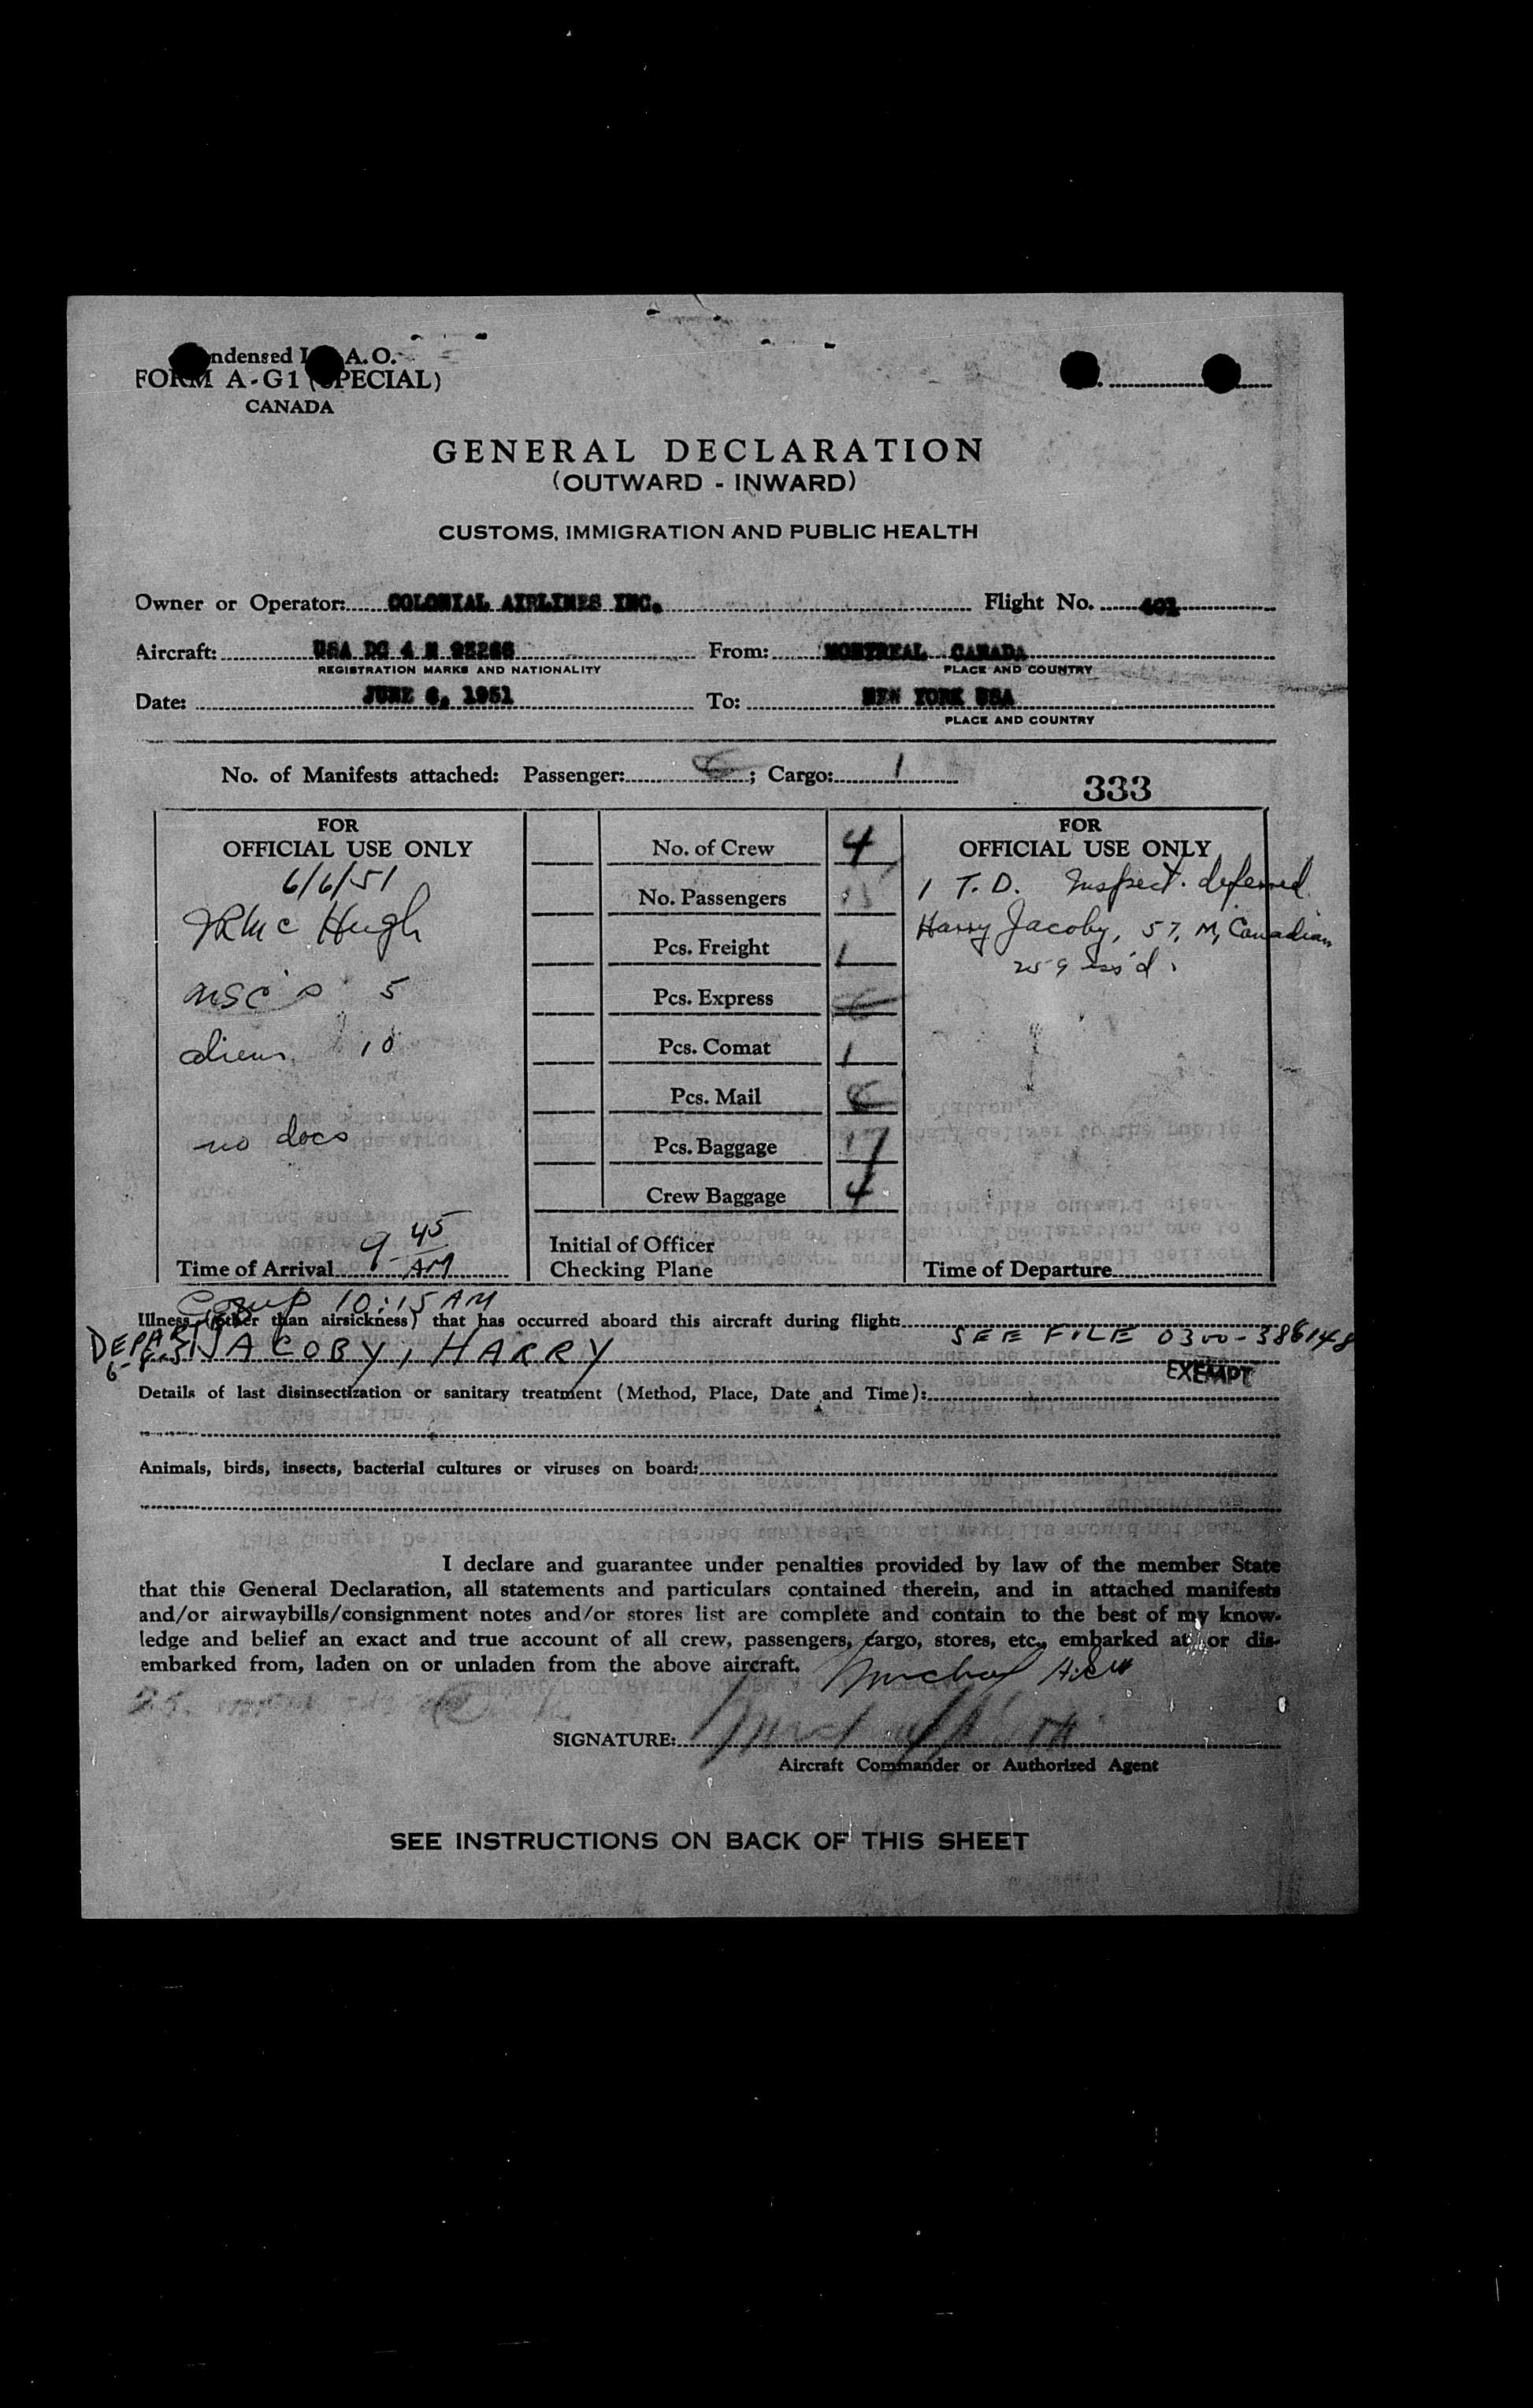 ndensed I A.O.
FORM A-G1 (SPECIAL)
CANADA
GENERAL DECLARATION
(OUTWARD - INWARD)
CUSTOMS, IMMIGRATION AND PUBLIC HEALTH
Owner or Operator: COLONIAL AIRLINES INC. Flight No. 401
Aircraft: USA DC 4 N From: MONTREAL CANADA
REGISTRATION MARKS AND NATIONALITY PLACE AND COUNTRY
Date: JUNE 6, 1951 To: NEW YORK USA
PLACE AND COUNTRY
No. of Manifests attached: Passenger: ; Cargo: 1
333
FOR OFFICIAL USE ONLY
6/6/51
McHugh
5
aliens 10
no docs
Time of Arrival 9 45 AM
No. of Crew 4
No. Passengers
Pcs. Freight 1
Pcs. Express
Pcs. Comat 1
Pcs. Mail
Pcs. Baggage 17
Crew Baggage 4
Initial of Officer
Checking Plane
FOR OFFICIAL USE ONLY
1 T.D. Inspect. deferred
Harry Jacoby, 57, M, Canadian
259 iss'd.
Time of Departure
Comp 10:15 AM
Illness (other than airsickness) that has occurred aboard this aircraft during flight:
DEPARTED JACOBY, HARRY SEE FILE 0300-386148
EXEMPT
Details of last disinsectization or sanitary treatment (Method, Place, Date and Time):
Animals, birds, insects, bacterial cultures or viruses on board:
I declare and guarantee under penalties provided by law of the member State
that this General Declaration, all statements and particulars contained therein, and in attached manifests
and/or airwaybills/consignment notes and/or stores list are complete and contain to the best of my know-
ledge and belief an exact and true account of all crew, passengers, cargo, stores, etc., embarked at or dis-
embarked from, laden on or unladen from the above aircraft.
SIGNATURE:
Aircraft Commander or Authorized Agent
SEE INSTRUCTIONS ON BACK OF THIS SHEET